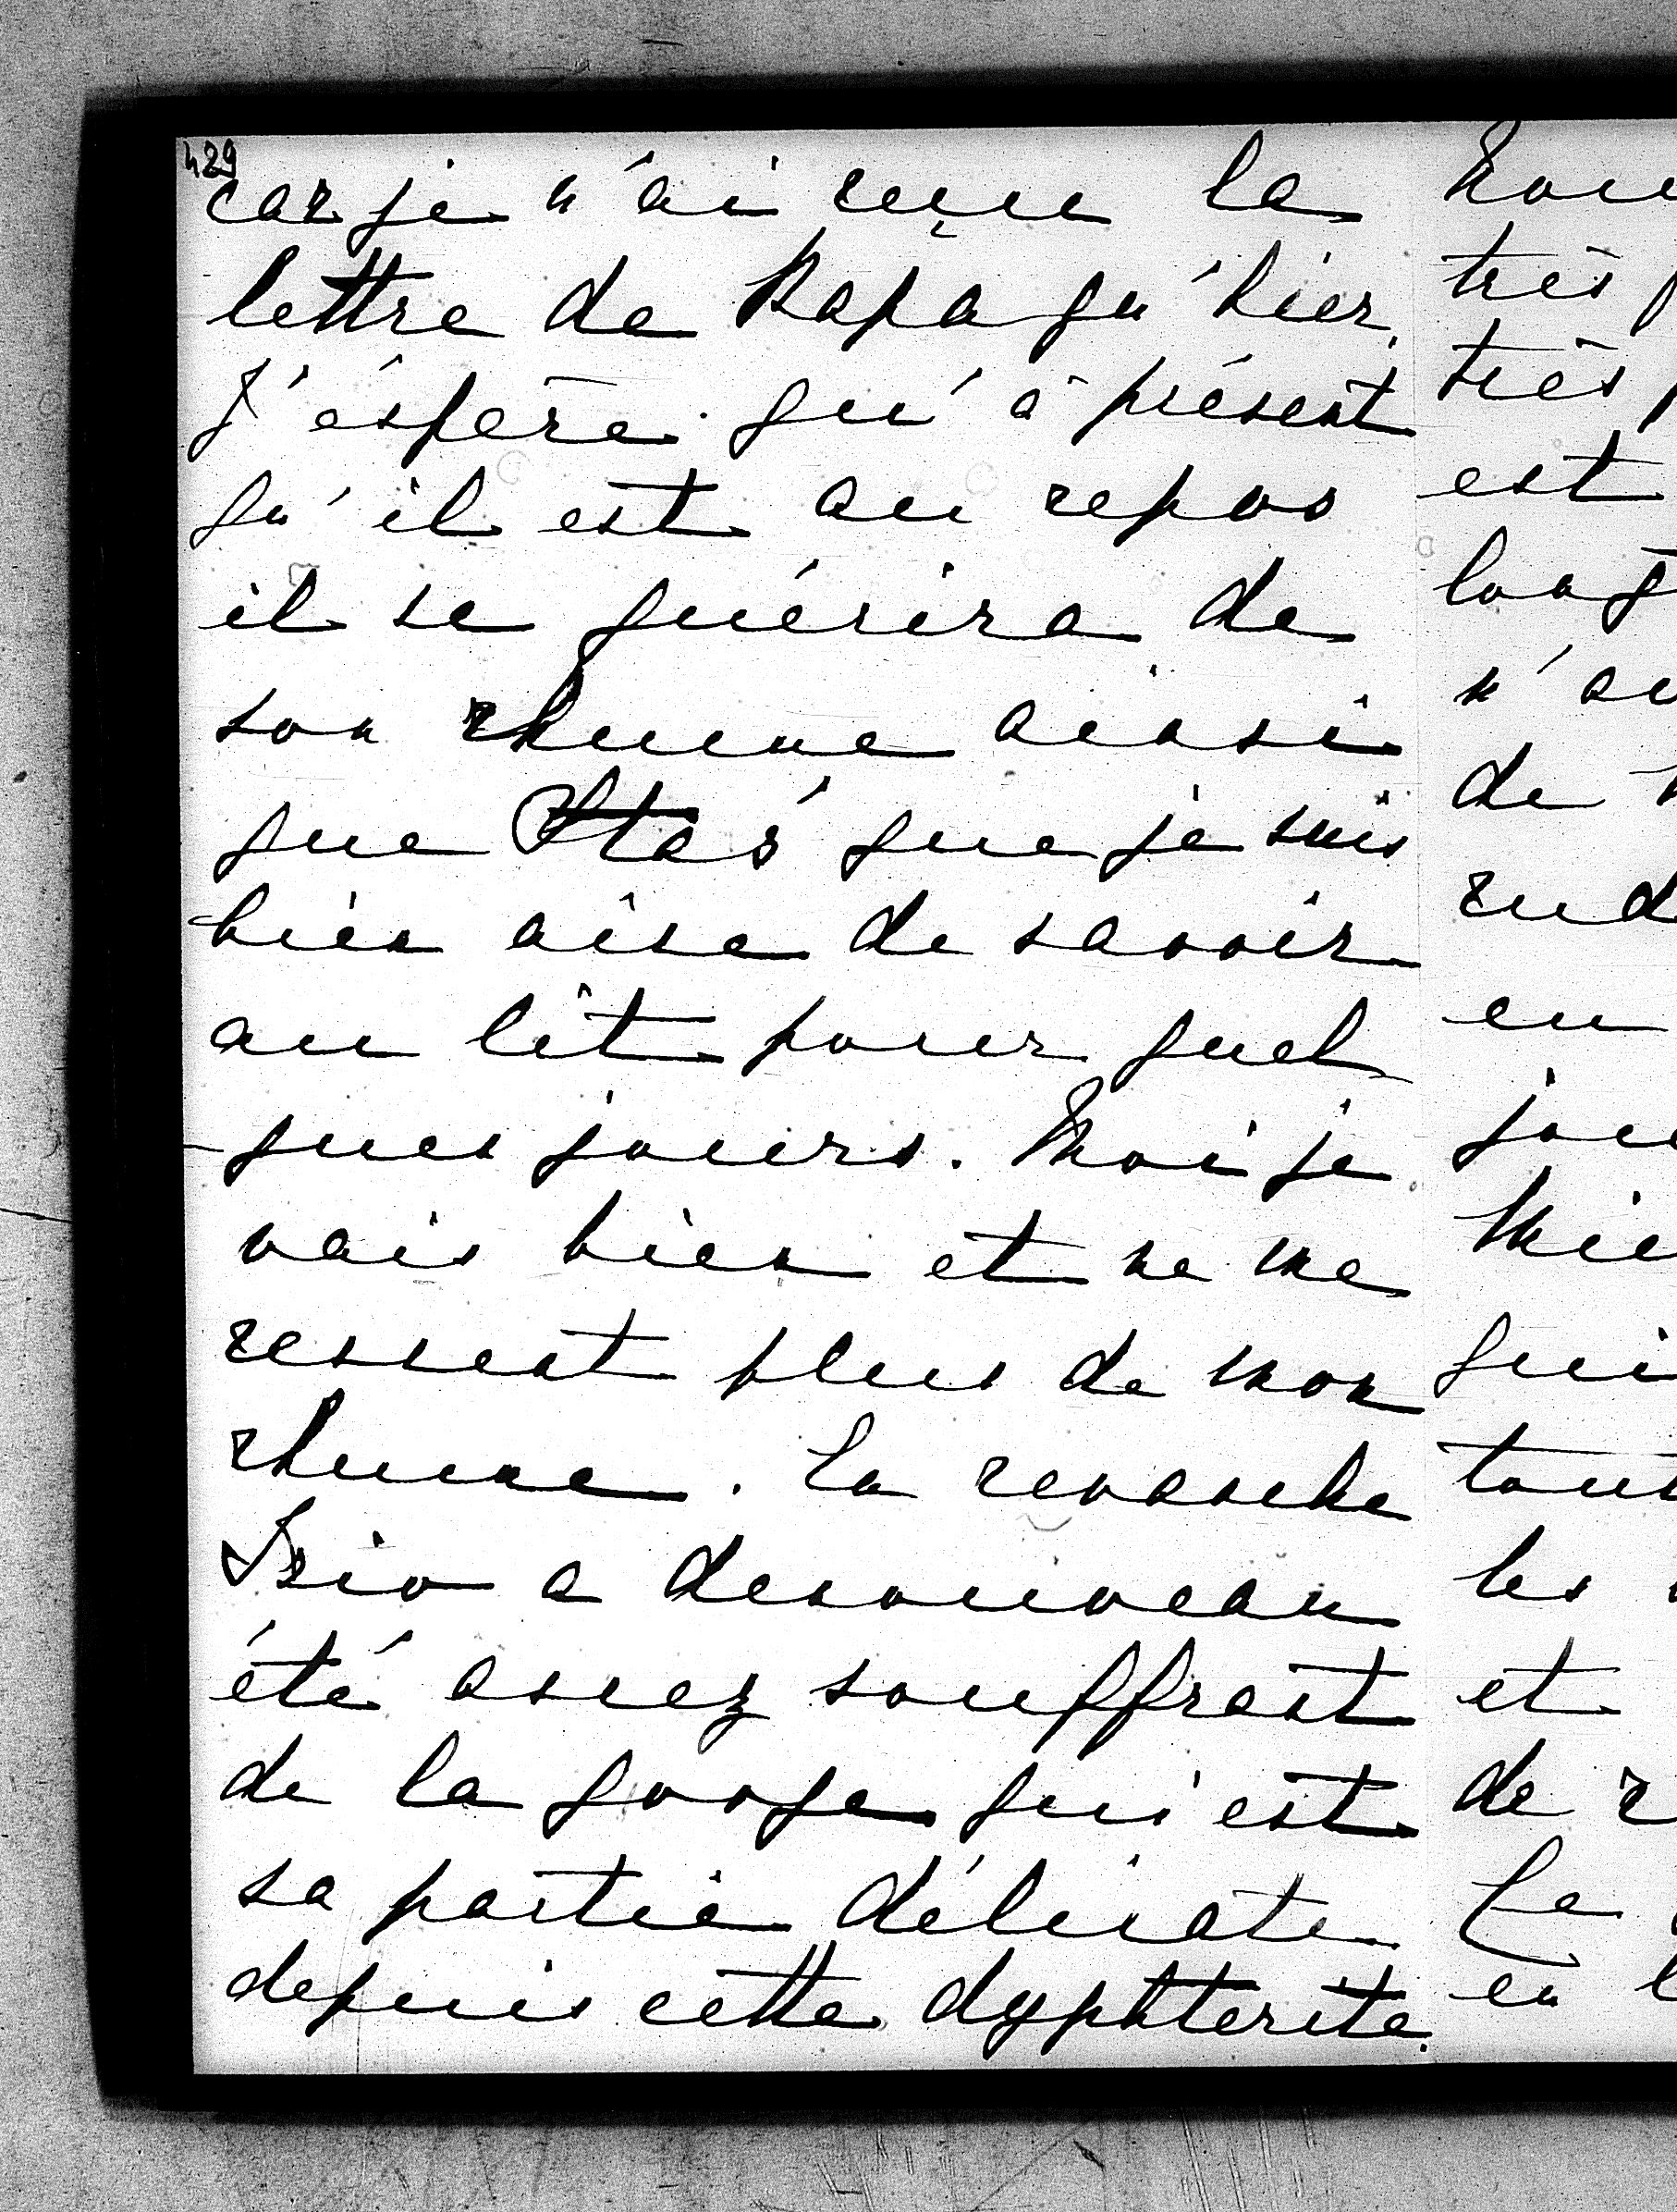 429
car je n'ai reçue la
lettre de Papa qu'hier.
J'éspère qu'à présent
qu'il est au repos
il se guérira de
son rhume ainsi
que que je suis
bien aîse de savoir
au lît pour quel
-ques jours. Moi je
vais bien et ne me
ressent plus de mon
rhume. En revanche
a denouveau
été assez souffrant
de la gorge qui est
sa partie délicate
depuis cette dyphterite.
très
très
est
de
en
qui
les
et
de
Le
en